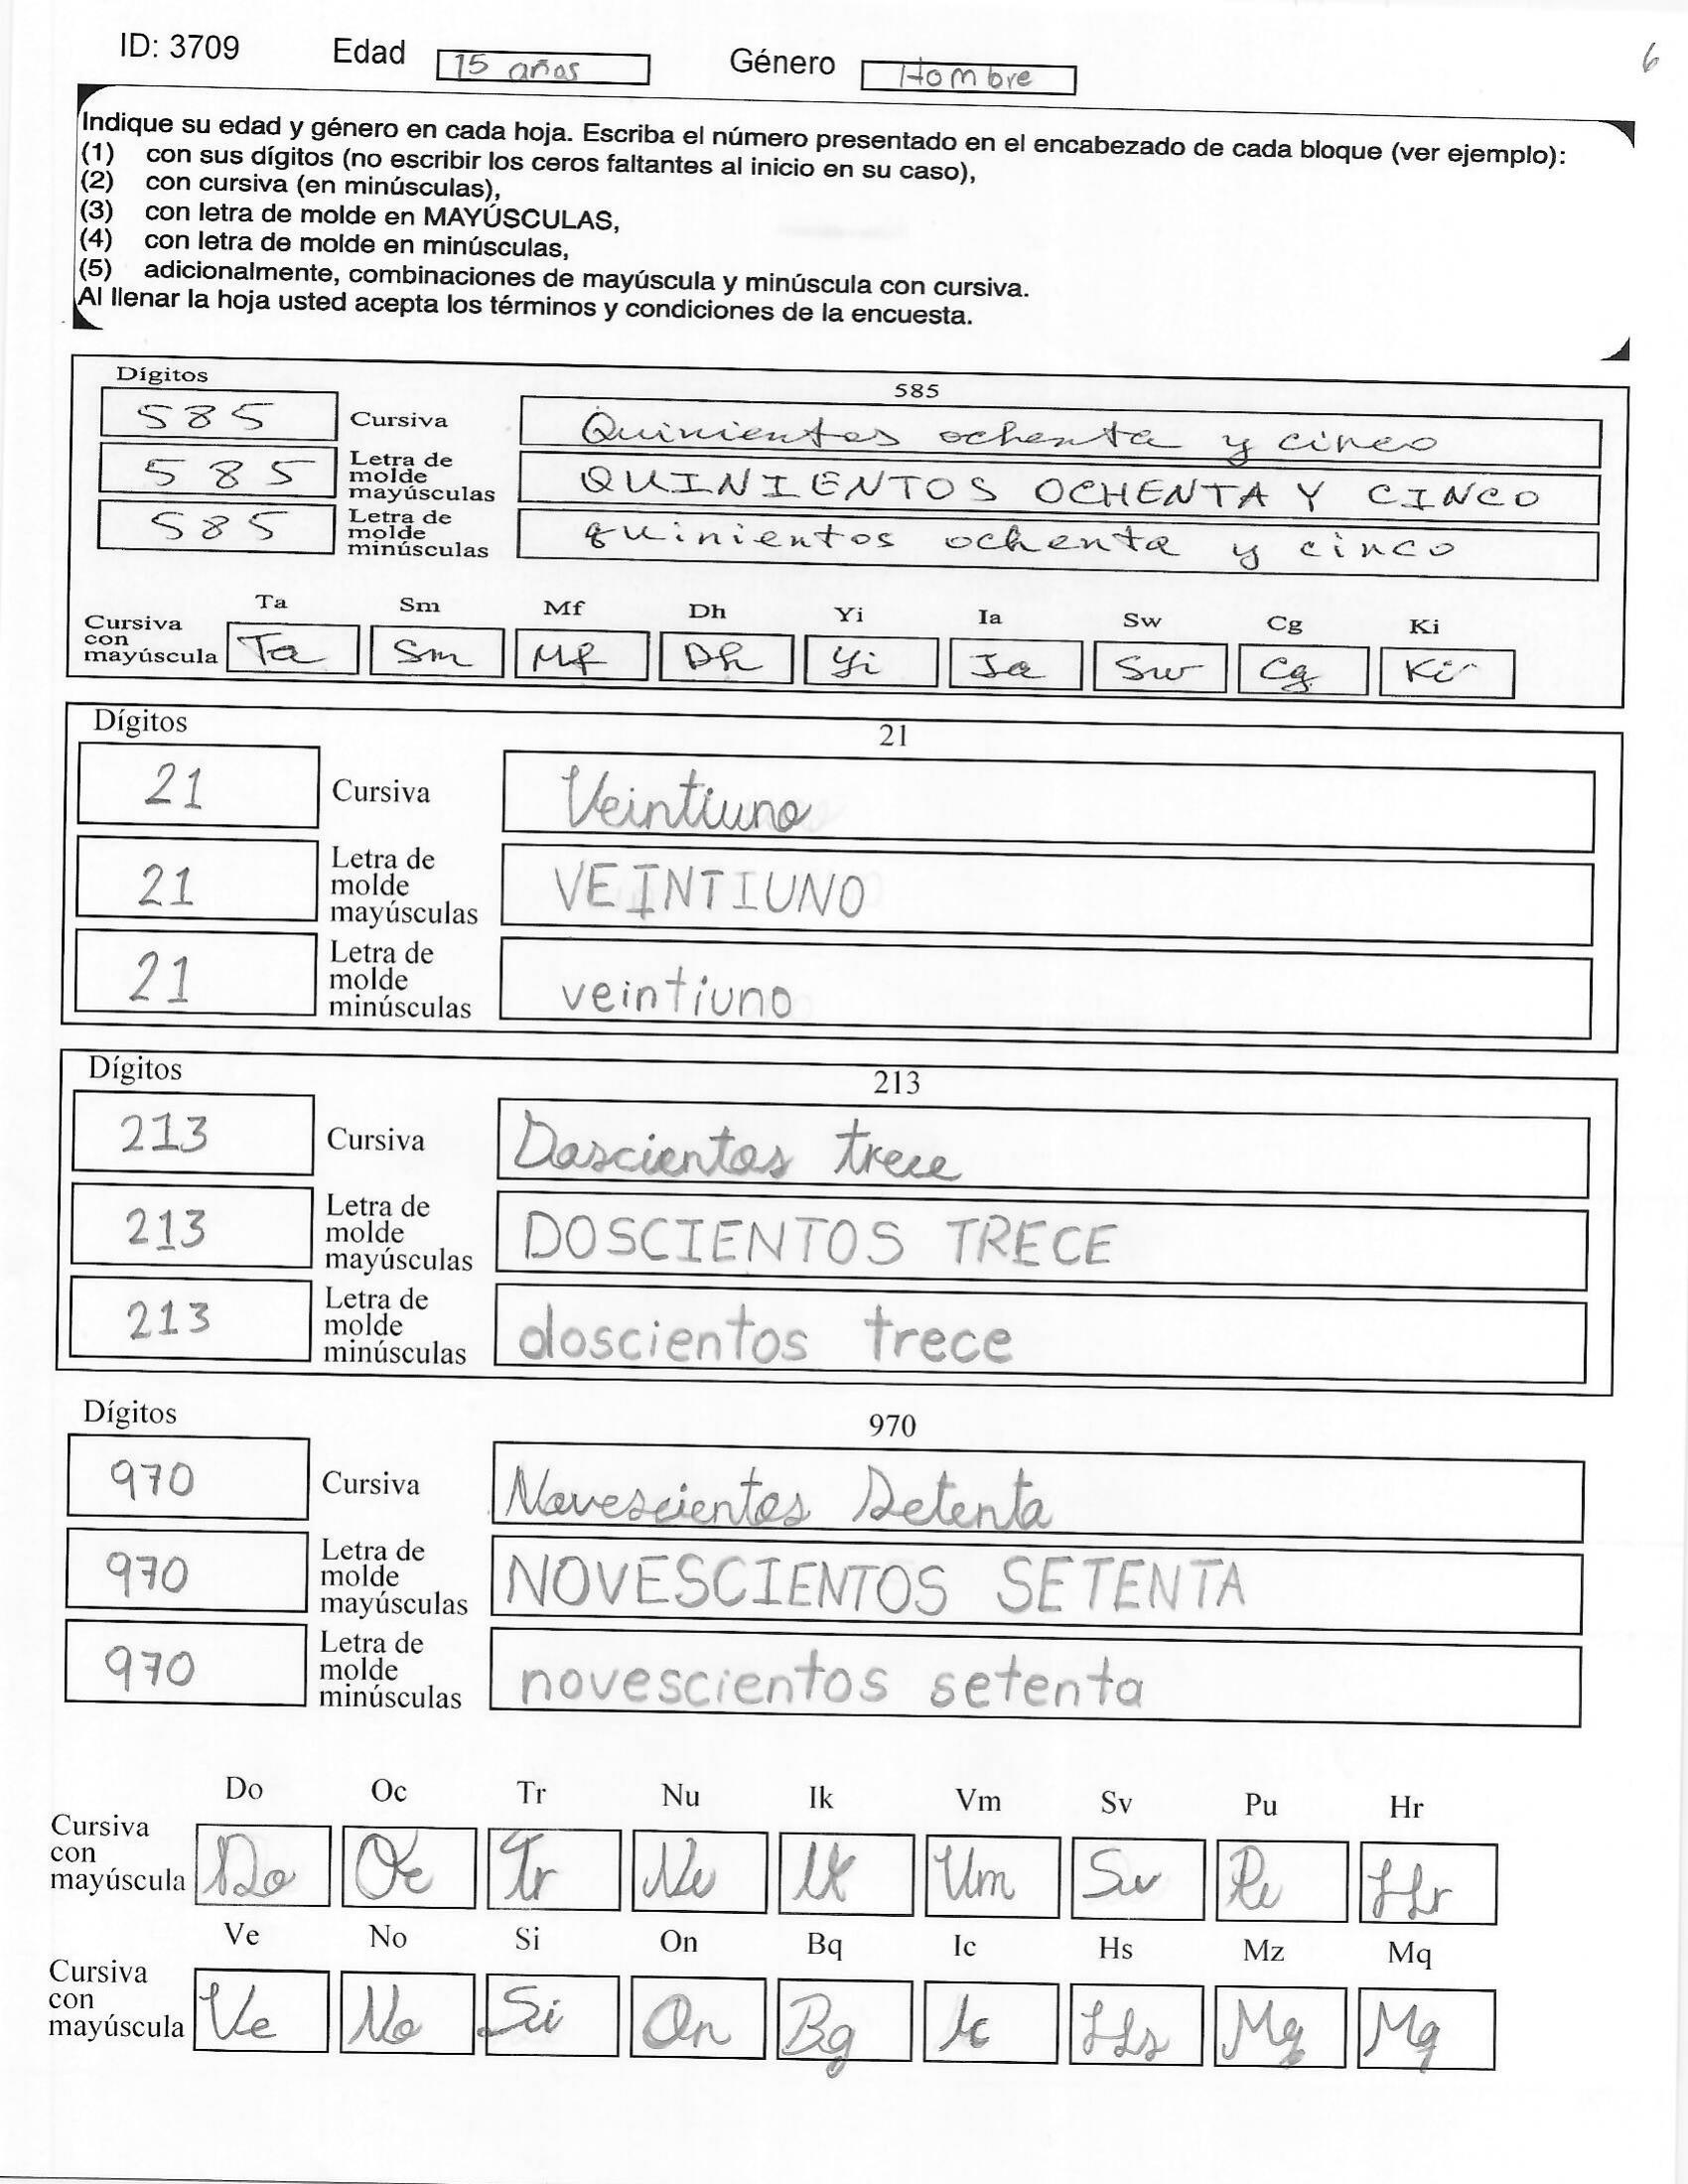 ID: 3709 Edad 15 años Género Hombre 6
Indique su edad y género en cada hoja. Escriba el número presentado en el encabezado de cada bloque (ver ejemplo):
(1) con sus dígitos (no escribir los ceros faltantes al inicio en su caso),
(2) con cursiva (en minúsculas),
(3) con letra de molde en MAYÚSCULAS,
(4) con letra de molde en minúsculas,
(5) adicionalmente, combinaciones de mayúscula y minúscula con cursiva.
Al llenar la hoja usted acepta los términos y condiciones de la encuesta.
Dígitos 585
585 Cursiva Quinientos ochenta y cinco
585 Letra de molde mayúsculas QUINIENTOS OCHENTA Y CINCO
585 Letra de molde minúsculas quinientos ochenta y cinco
Ta Sm Mf Dh Yi Ia Sw Cg Ki
Cursiva con mayúscula Ta Sm Mf Dh Yi Ia Sw Cg Ki
Dígitos 21
21 Cursiva Veintiuno
21 Letra de molde mayúsculas VEINTIUNO
21 Letra de molde minúsculas veintiuno
Dígitos 213
213 Cursiva Doscientos trece
213 Letra de molde mayúsculas DOSCIENTOS TRECE
213 Letra de molde minúsculas doscientos trece
Dígitos 970
970 Cursiva Novescientos Setenta
970 Letra de molde mayúsculas NOVESCIENTOS SETENTA
970 Letra de molde minúsculas novescientos setenta
Do Oc Tr Nu Ik Vm Sv Pu Hr
Cursiva con mayúscula Do Oc Tr Nu Ik Vm Sv Pu Hr
Ve No Si On Bq Ic Hs Mz Mq
Cursiva con mayúscula Ve No Si On Bq Ic Hs Mq Mq